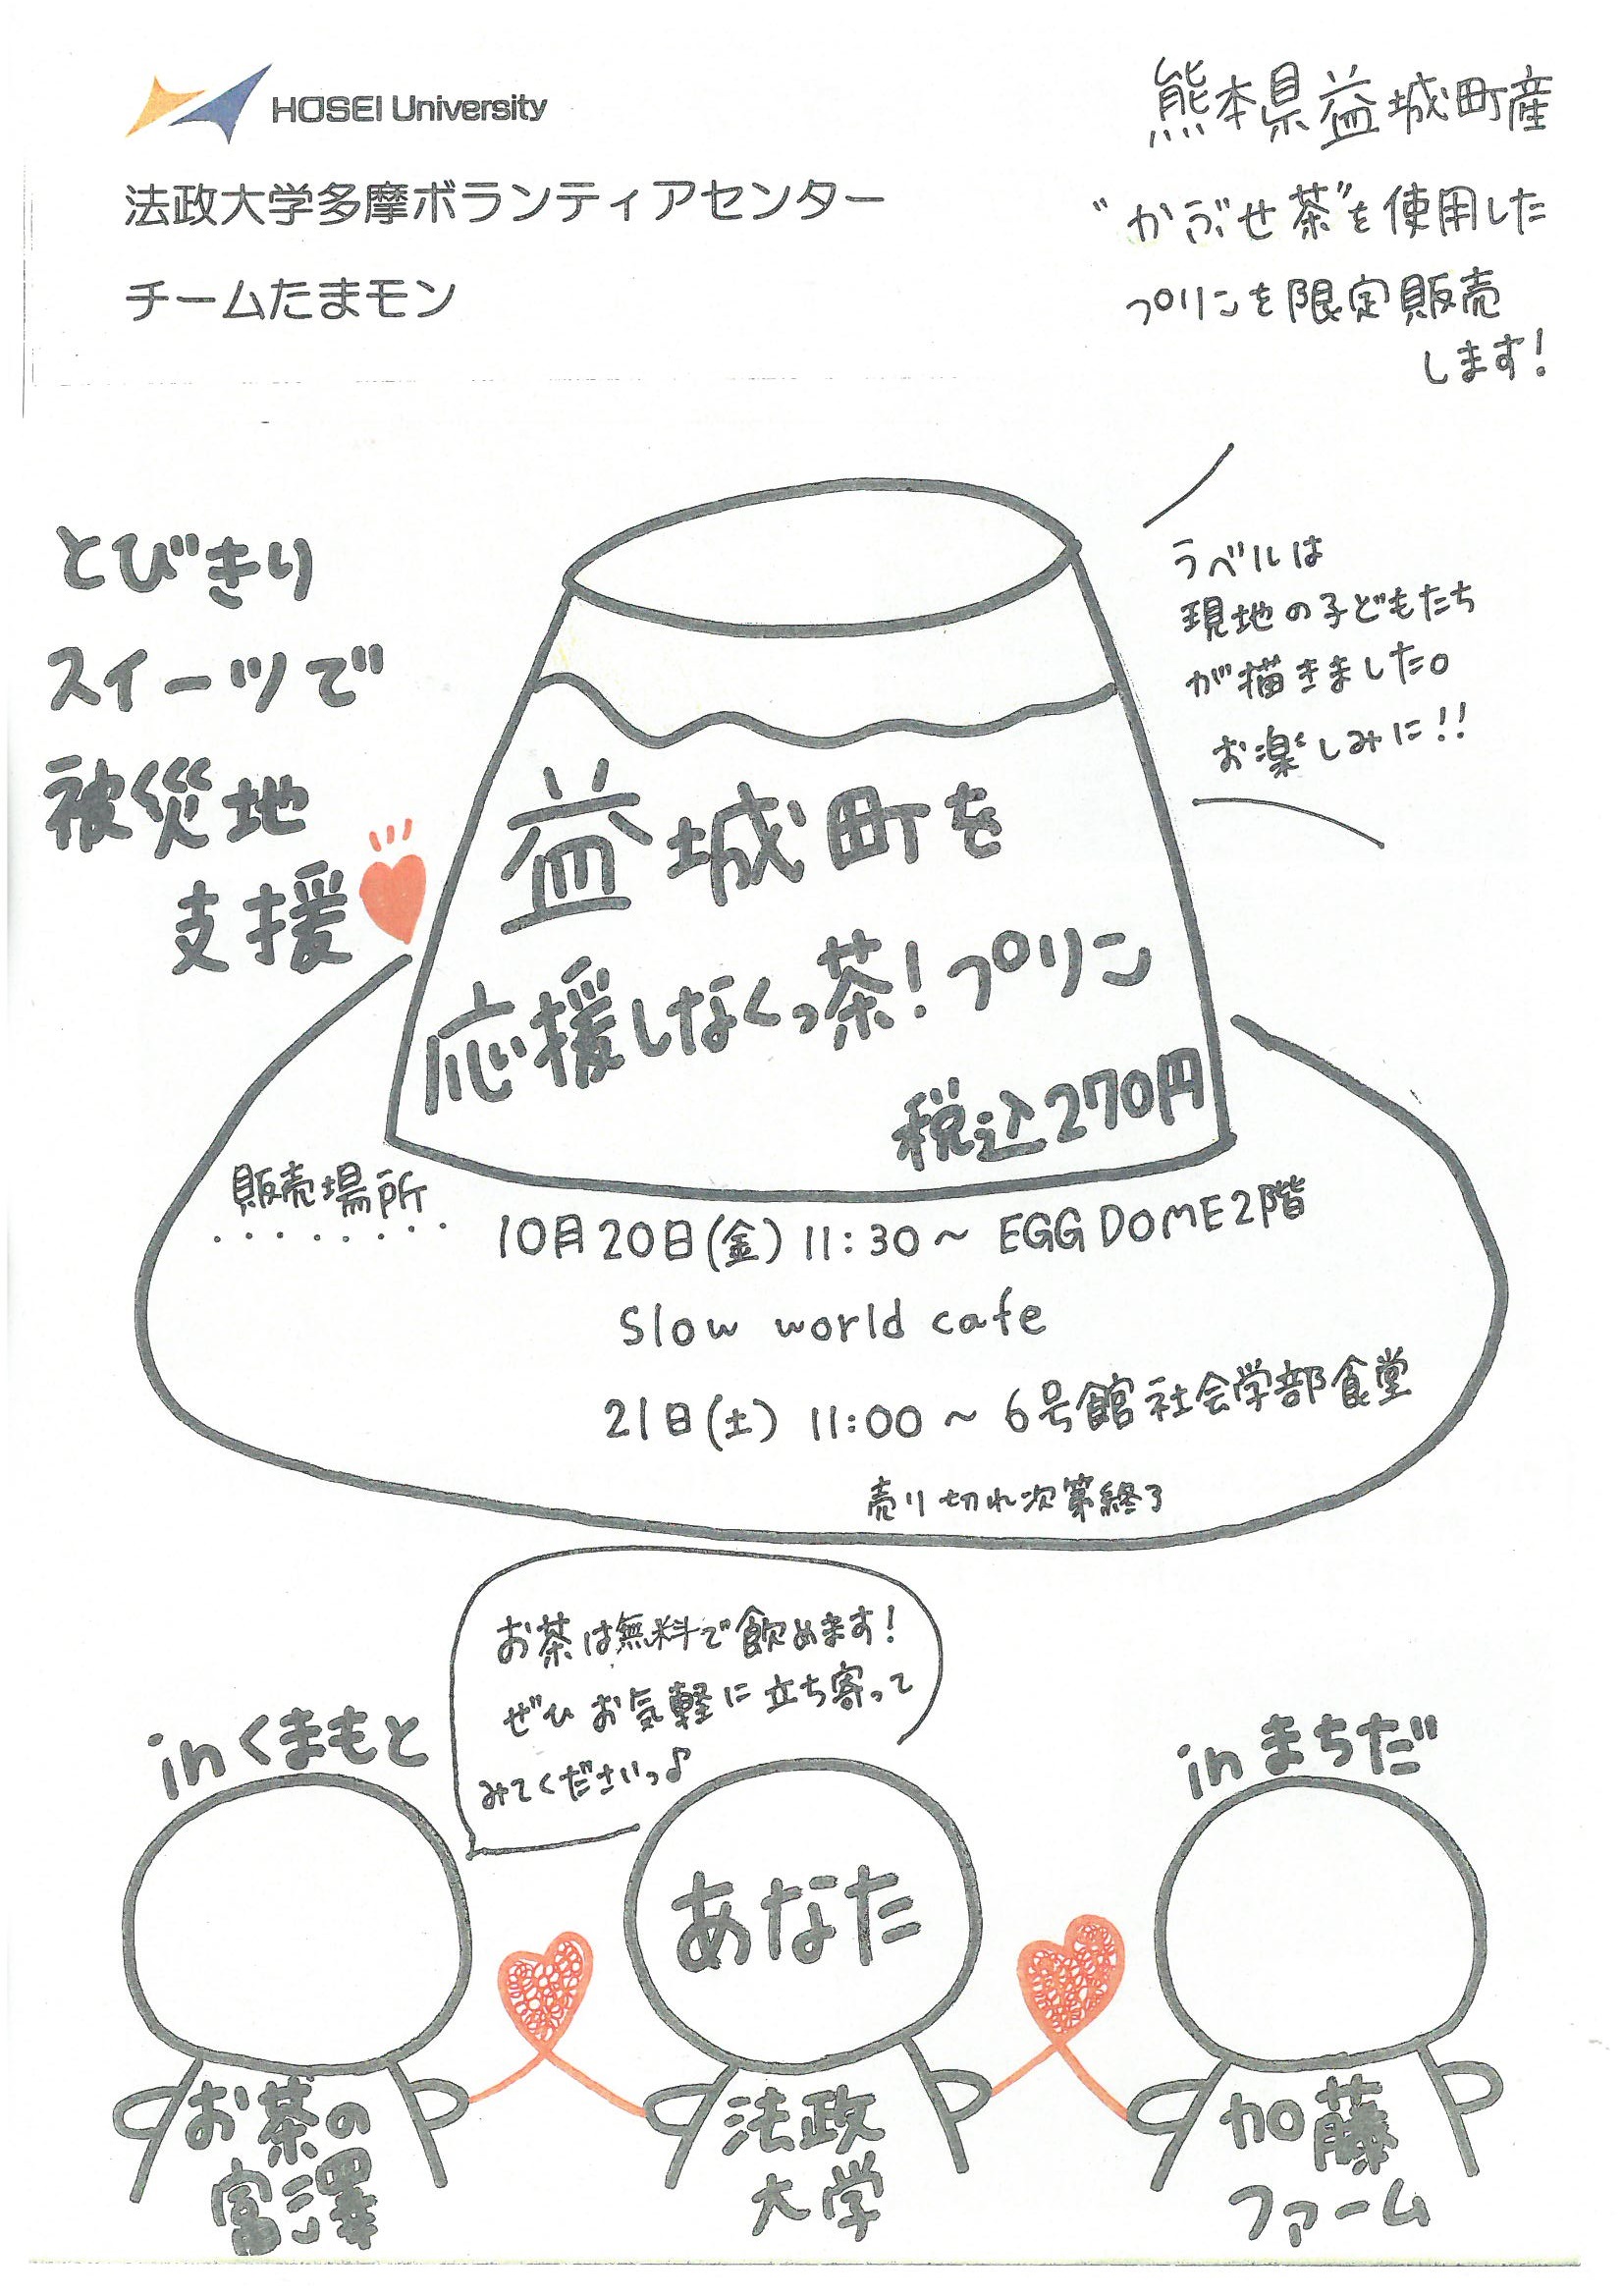 HOSEI University
法政大学多摩ボランティアセンター
チームたまモン
熊本県益城町産
"かぶせ茶"を使用した
プリンを限定販売
します!
とびきり
スイーツで
被災地
支援
ラベルは
現地の子どもたち
が描きました。
お楽しみに!!
益城町を
応援しなくっ茶!プリン
税込270円
販売場所
10月20日(金) 11:30~ EGG DOME2階
Slow world cafe
21日(土) 11:00~ 6号館社会学部食堂
売り切れ次第終了
お茶は無料で飲めます!
ぜひお気軽に立ち寄って
みてくださいっ♪
inくまもと
inまちだ
あなた
お茶の
富澤
法政
大学
加藤
ファーム